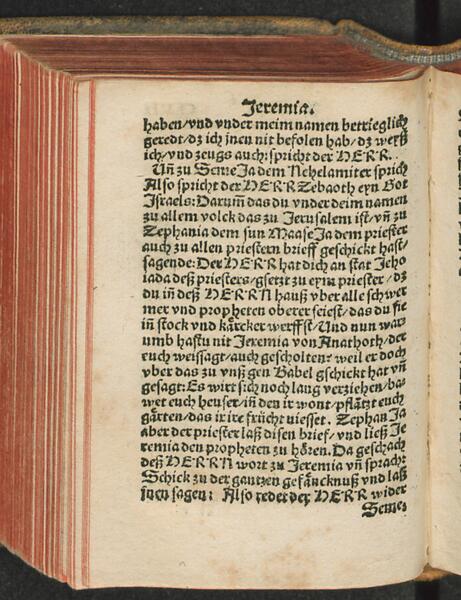 Jeremia.
haben/vnd vnder meim namen betrieglich
geredt/dz ich jnen nit befolen hab/dz weyß
ich/vnd zeugs auch: spricht der HERR.
Vñ zu SemeJa dem Nehelamiter sprich
Also spricht der HERR Zebaoth eyn Got
Israels: Darum̃ das du vnder deim namen
zu allem volck das zu Jerusalem ist/vñ zu
Zephania dem sun MaaseJa dem priester
auch zu allen priestern brieff geschickt hast/
sagende: Der HERR hat dich an stat Jeho
iada deß priesters/gsetzt zu eym priester/dz
du in deß HERRN hauß vber alle schwer
mer vnd propheten oberer seiest/das du sie
in stock vnd kärcker werffst/Und nun war
umb hastu nit Jeremia von Anathoth/der
euch weissagt/auch gescholten? weil er doch
vber das zu vnß gen Babel gschickt hat vñ
gesagt: Es wirt sich noch lang verziehen/ba
wet euch heuser/in den ir wont/pflãtzt euch
gärten/das ir ire frücht niesset. ZephanJa
aber der priester laß disen brief/vnd ließ Je
remia den propheten zu hören. Da geschach
deß HERRN wort zu Jeremia vñ sprach:
Schick zu der gantzen gefäncknuß vnd laß
jnen sagen: Also redet der HERR wider
Seme-